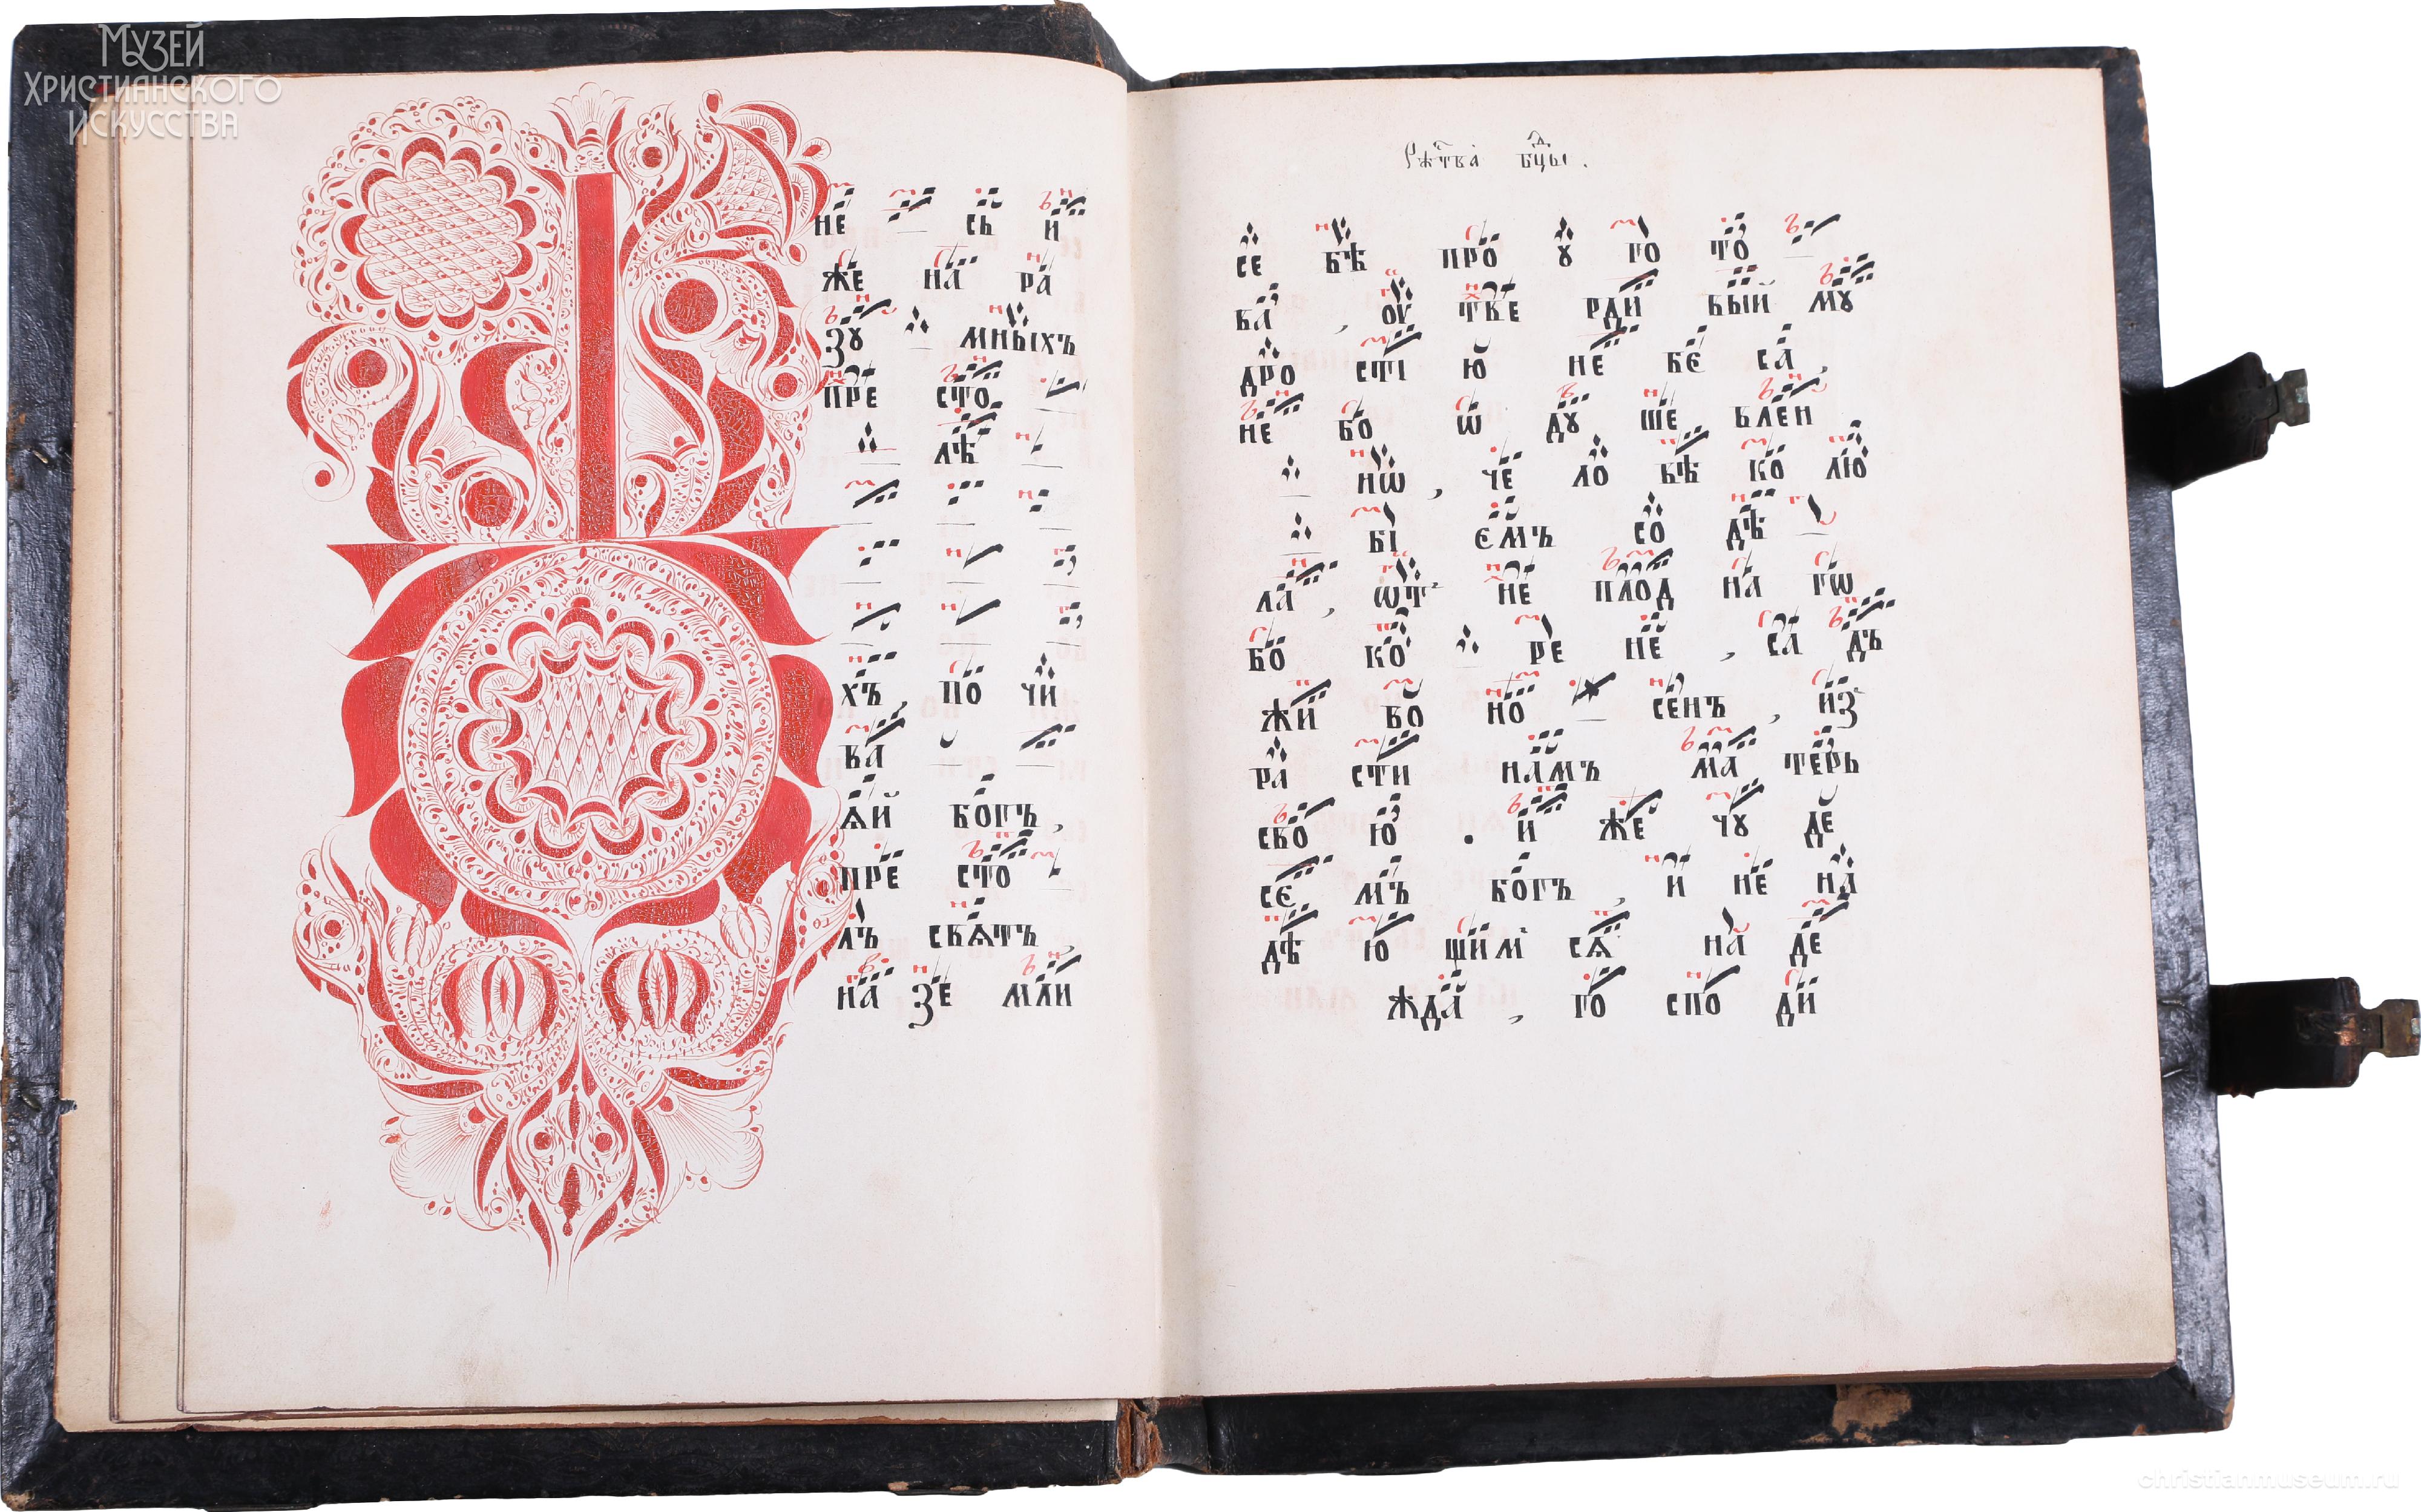 Музей
Христианского
искусства
не сь и
же на ра
зꙋ мныхъ
пре сто
лѣ
хъ, по чи
ва
ѧй богъ,
пре сто
лъ свѧтъ,
на зе мли
Рж҇тва бцы.
се бѣ про ꙋ го то
ва , оу тве рди вый мꙋ
дро стї ю не бе са,
не бо ѡ дꙋ ше влен
нѡ, че ло вѣ ко лю
бї емъ со дѣ
ла, ѿ не плод на гѡ
бо ко ре не, са дъ
жи во но сенъ, из
ра сти намъ ма терь
сво ю . и же чꙋ де
се мъ богъ, и не на
дѣ ю щим сѧ на де
жда, го спо ди
christianmuseum.ru